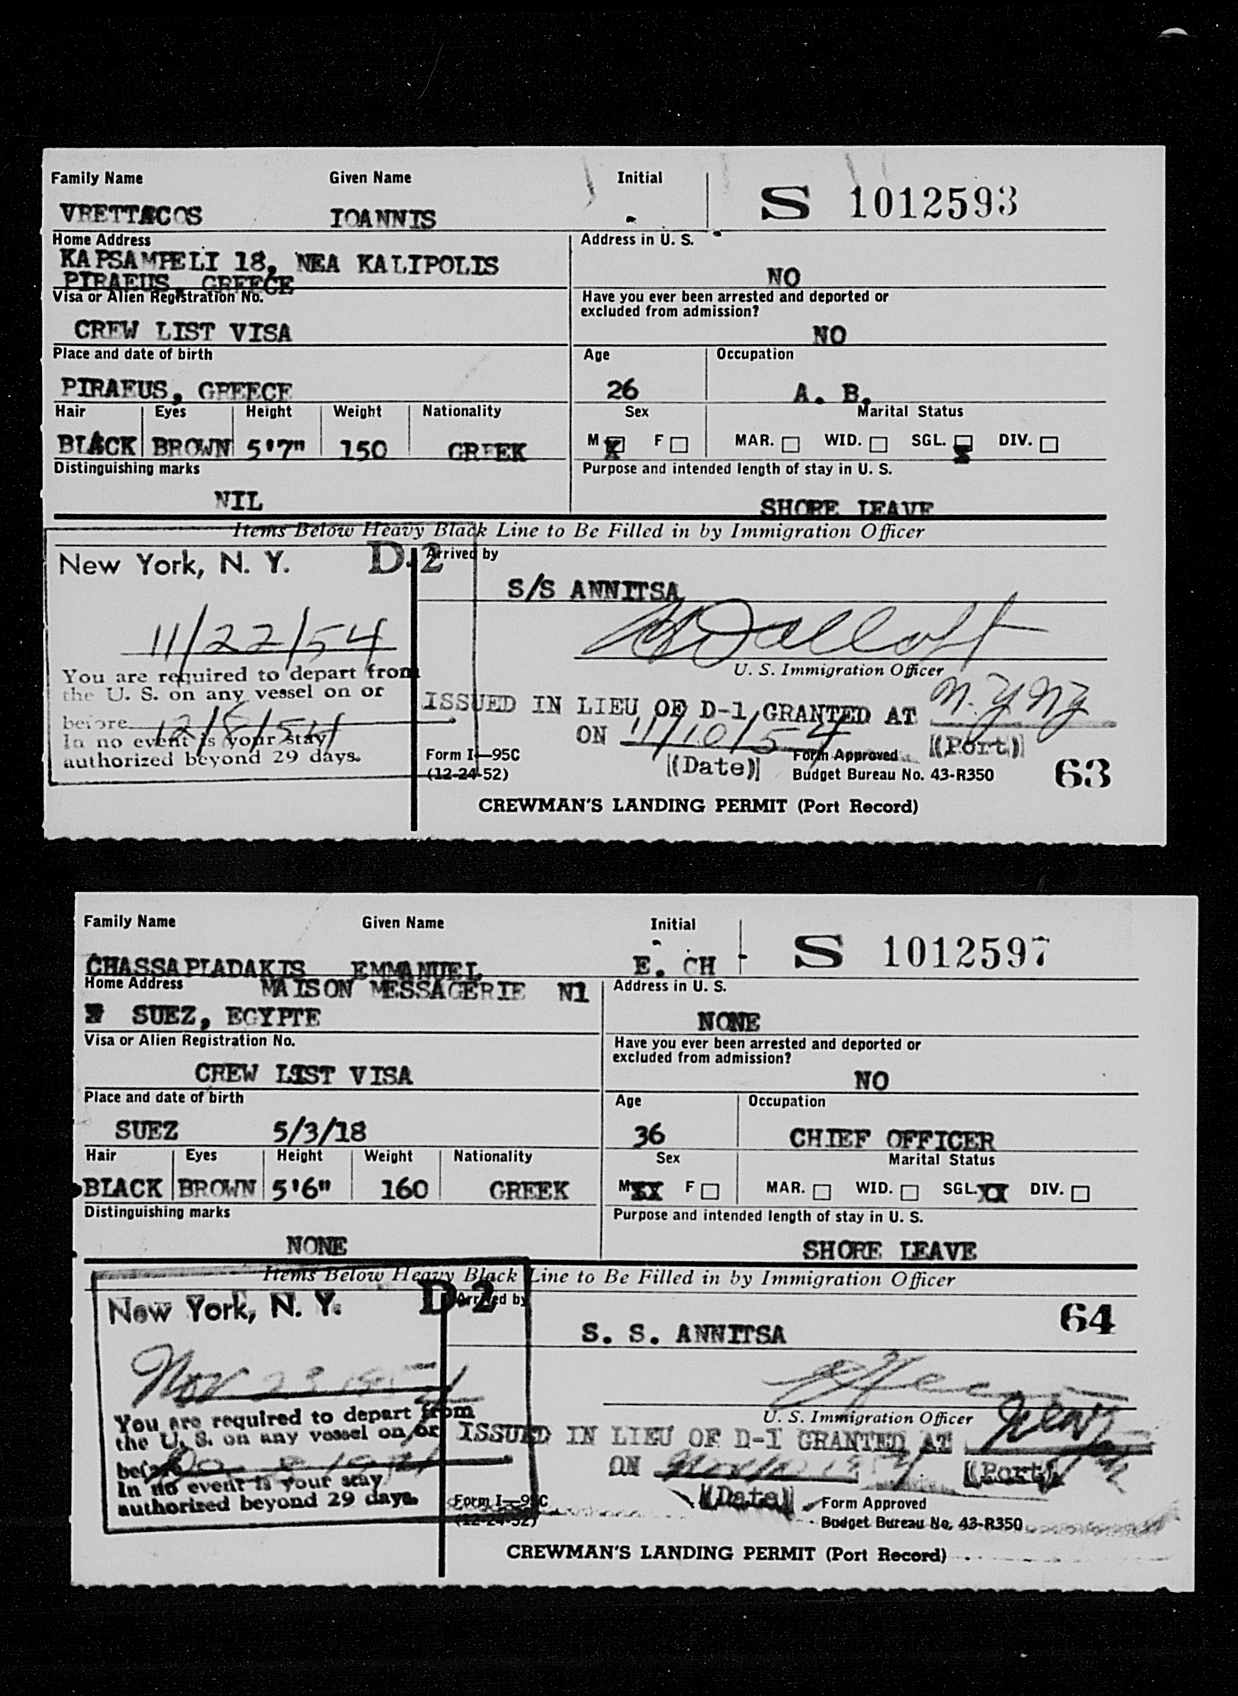 Family Name Given Name Initial
S 1012593
VRETTACOS IOANNIS .
Home Address Address in U. S.
KAPSAMPELI 18, NEA KALIPOLIS
PIRAEUS, GREECE NO
Visa or Alien Registration No. Have you ever been arrested and deported or
excluded from admission?
CREW LIST VISA NO
Place and date of birth Age Occupation
PIRAEUS, GREECE 26 A. B.
Hair Eyes Height Weight Nationality Sex Marital Status
BLACK BROWN 5'7" 150 GREEK M X F MAR. WID. SGL. X DIV.
Distinguishing marks Purpose and intended length of stay in U. S.
NIL SHORE LEAVE
Items Below Heavy Black Line to Be Filled in by Immigration Officer
New York, N. Y. D-2 Arrived by
S/S ANNITSA
11/22/54
You are required to depart from U. S. Immigration Officer
the U. S. on any vessel on or
before 12/8/54 ISSUED IN LIEU OF D-1 GRANTED AT N.Y. NY
In no event is your stay ON 11/10/54 (Port)
authorized beyond 29 days. Form I—95C (Date) Form Approved
(12-24-52) Budget Bureau No. 43-R350 63
CREWMAN'S LANDING PERMIT (Port Record)
Family Name Given Name Initial
S 1012597
CHASSAPLADAKIS EMMANUEL E. CH
Home Address MAISON MESSAGERIE N1 Address in U. S.
SUEZ, EGYPTE NONE
Visa or Alien Registration No. Have you ever been arrested and deported or
excluded from admission?
CREW LIST VISA NO
Place and date of birth Age Occupation
SUEZ 5/3/18 36 CHIEF OFFICER
Hair Eyes Height Weight Nationality Sex Marital Status
BLACK BROWN 5'6" 160 GREEK M XX F MAR. WID. SGL. XX DIV.
Distinguishing marks Purpose and intended length of stay in U. S.
NONE SHORE LEAVE
Items Below Heavy Black Line to Be Filled in by Immigration Officer
New York, N. Y. D-2 Arrived by 64
S. S. ANNITSA
Nov 23 1954
You are required to depart from U. S. Immigration Officer
the U. S. on any vessel on or ISSUED IN LIEU OF D-1 GRANTED AT
before ON (Port)
In no event is your stay (Date)
authorized beyond 29 days. Form I—95C Form Approved
(12-24-52) Budget Bureau No. 43-R350
CREWMAN'S LANDING PERMIT (Port Record)